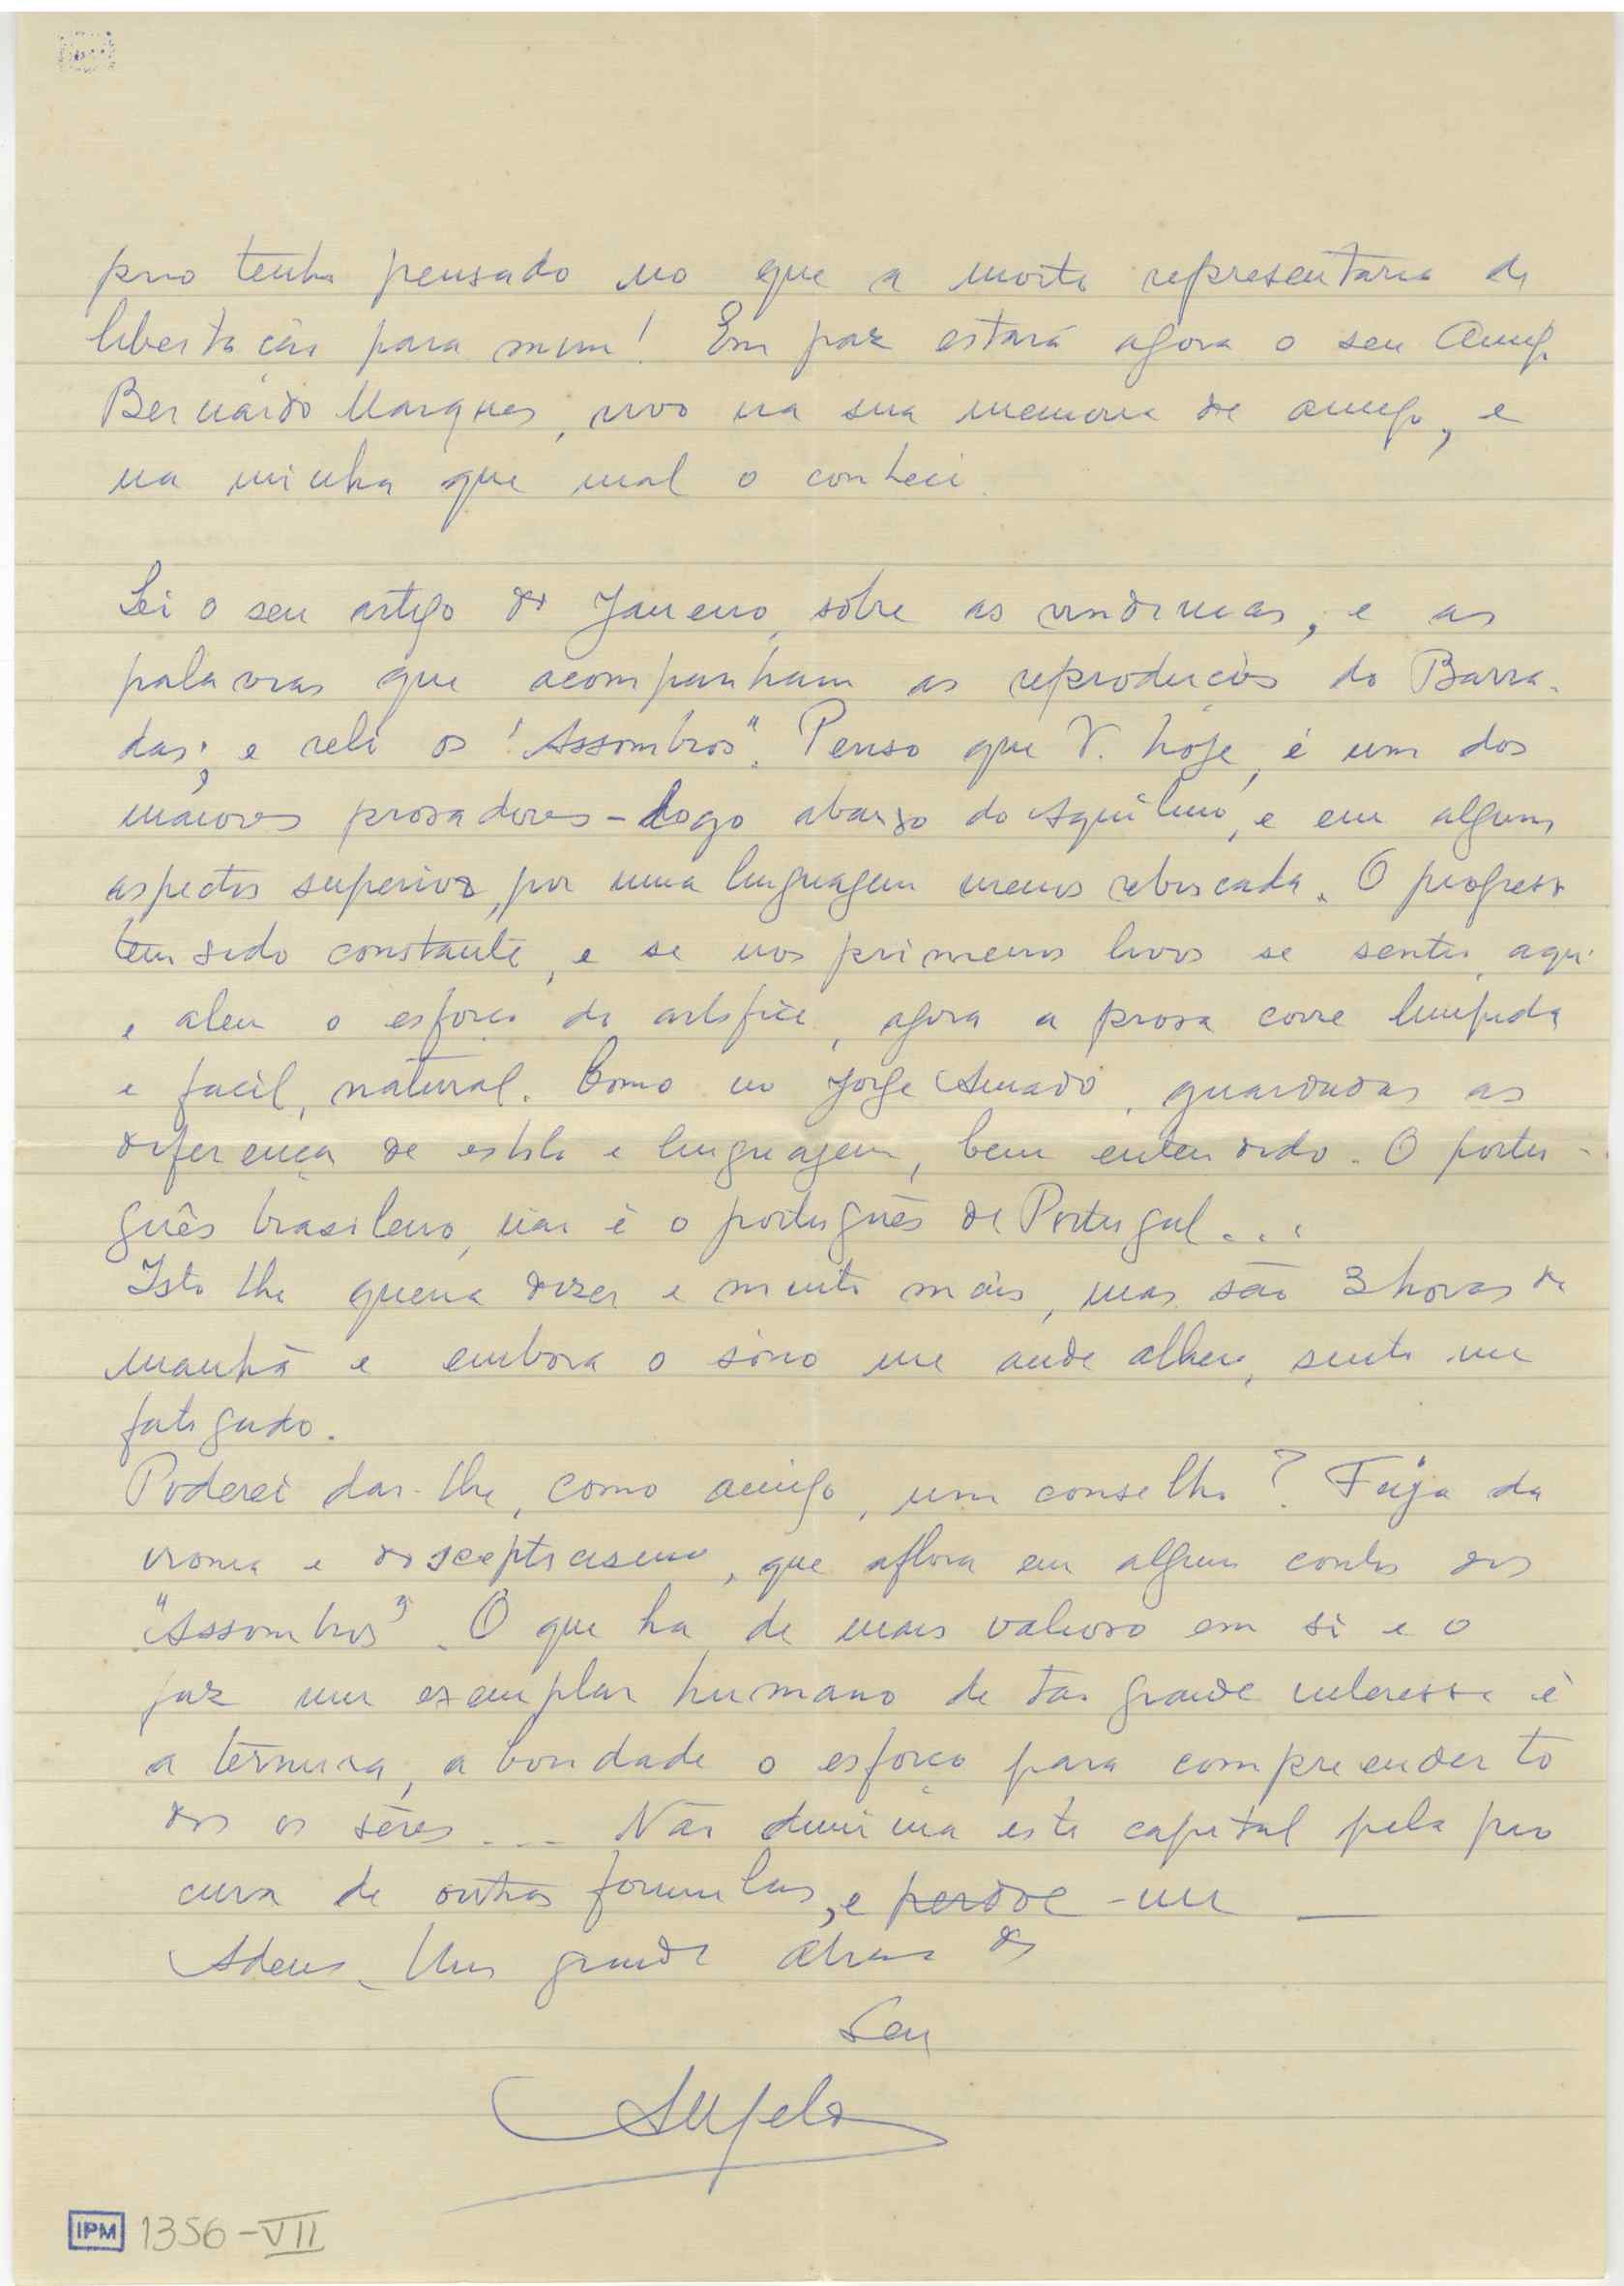 prio tenho pensado no que a morte representaria de
libertação para mim! Em paz estará agora o seu Amigo
Bernardo Marques, vivo na sua memoria de amigo, e
na minha que mal o conheci.
Lei o seu artigo do Janeiro, sôbre as vindimas, e as
palavras que acompanham as reproduções do Barra-
das; e reli os "Assombros". Penso que V. hoje, é um dos
maiores prosadores - logo abaixo do Aquilino, e em alguns
aspectos superior, por uma linguagem menos rebuscada. O progresso
tem sido constante, e se nos primeiros livros se sentia, aqui
e alem o esforço do artifice, agora a prosa corre limpida
e facil, natural. Como no Jorge Amado, guardadas as
diferença de estilo e linguagem, bem entendido. O portu-
guês brasileiro, não é o português de Portugal...
Isto lhe queria dizer e muito mais, mas são 3 horas da
manhã e embora o sôno me ande alheio, sinto-me
fatigado.
Poderei dar-lhe, como amigo, um conselho? Fuja da
ironia e do scepticismo, que aflora em alguns contos dos
"Assombros". O que ha de mais valioso em si e o
faz um exemplar humano de tão grande interesse é
a ternura, a bondade o esforço para compreender to
dos os sêres... Não diminua este capital pela pro
cura de outras formulas, e perdoe-me —
Adeus. Um grande abraço do
Seu
IPM 1356-VII